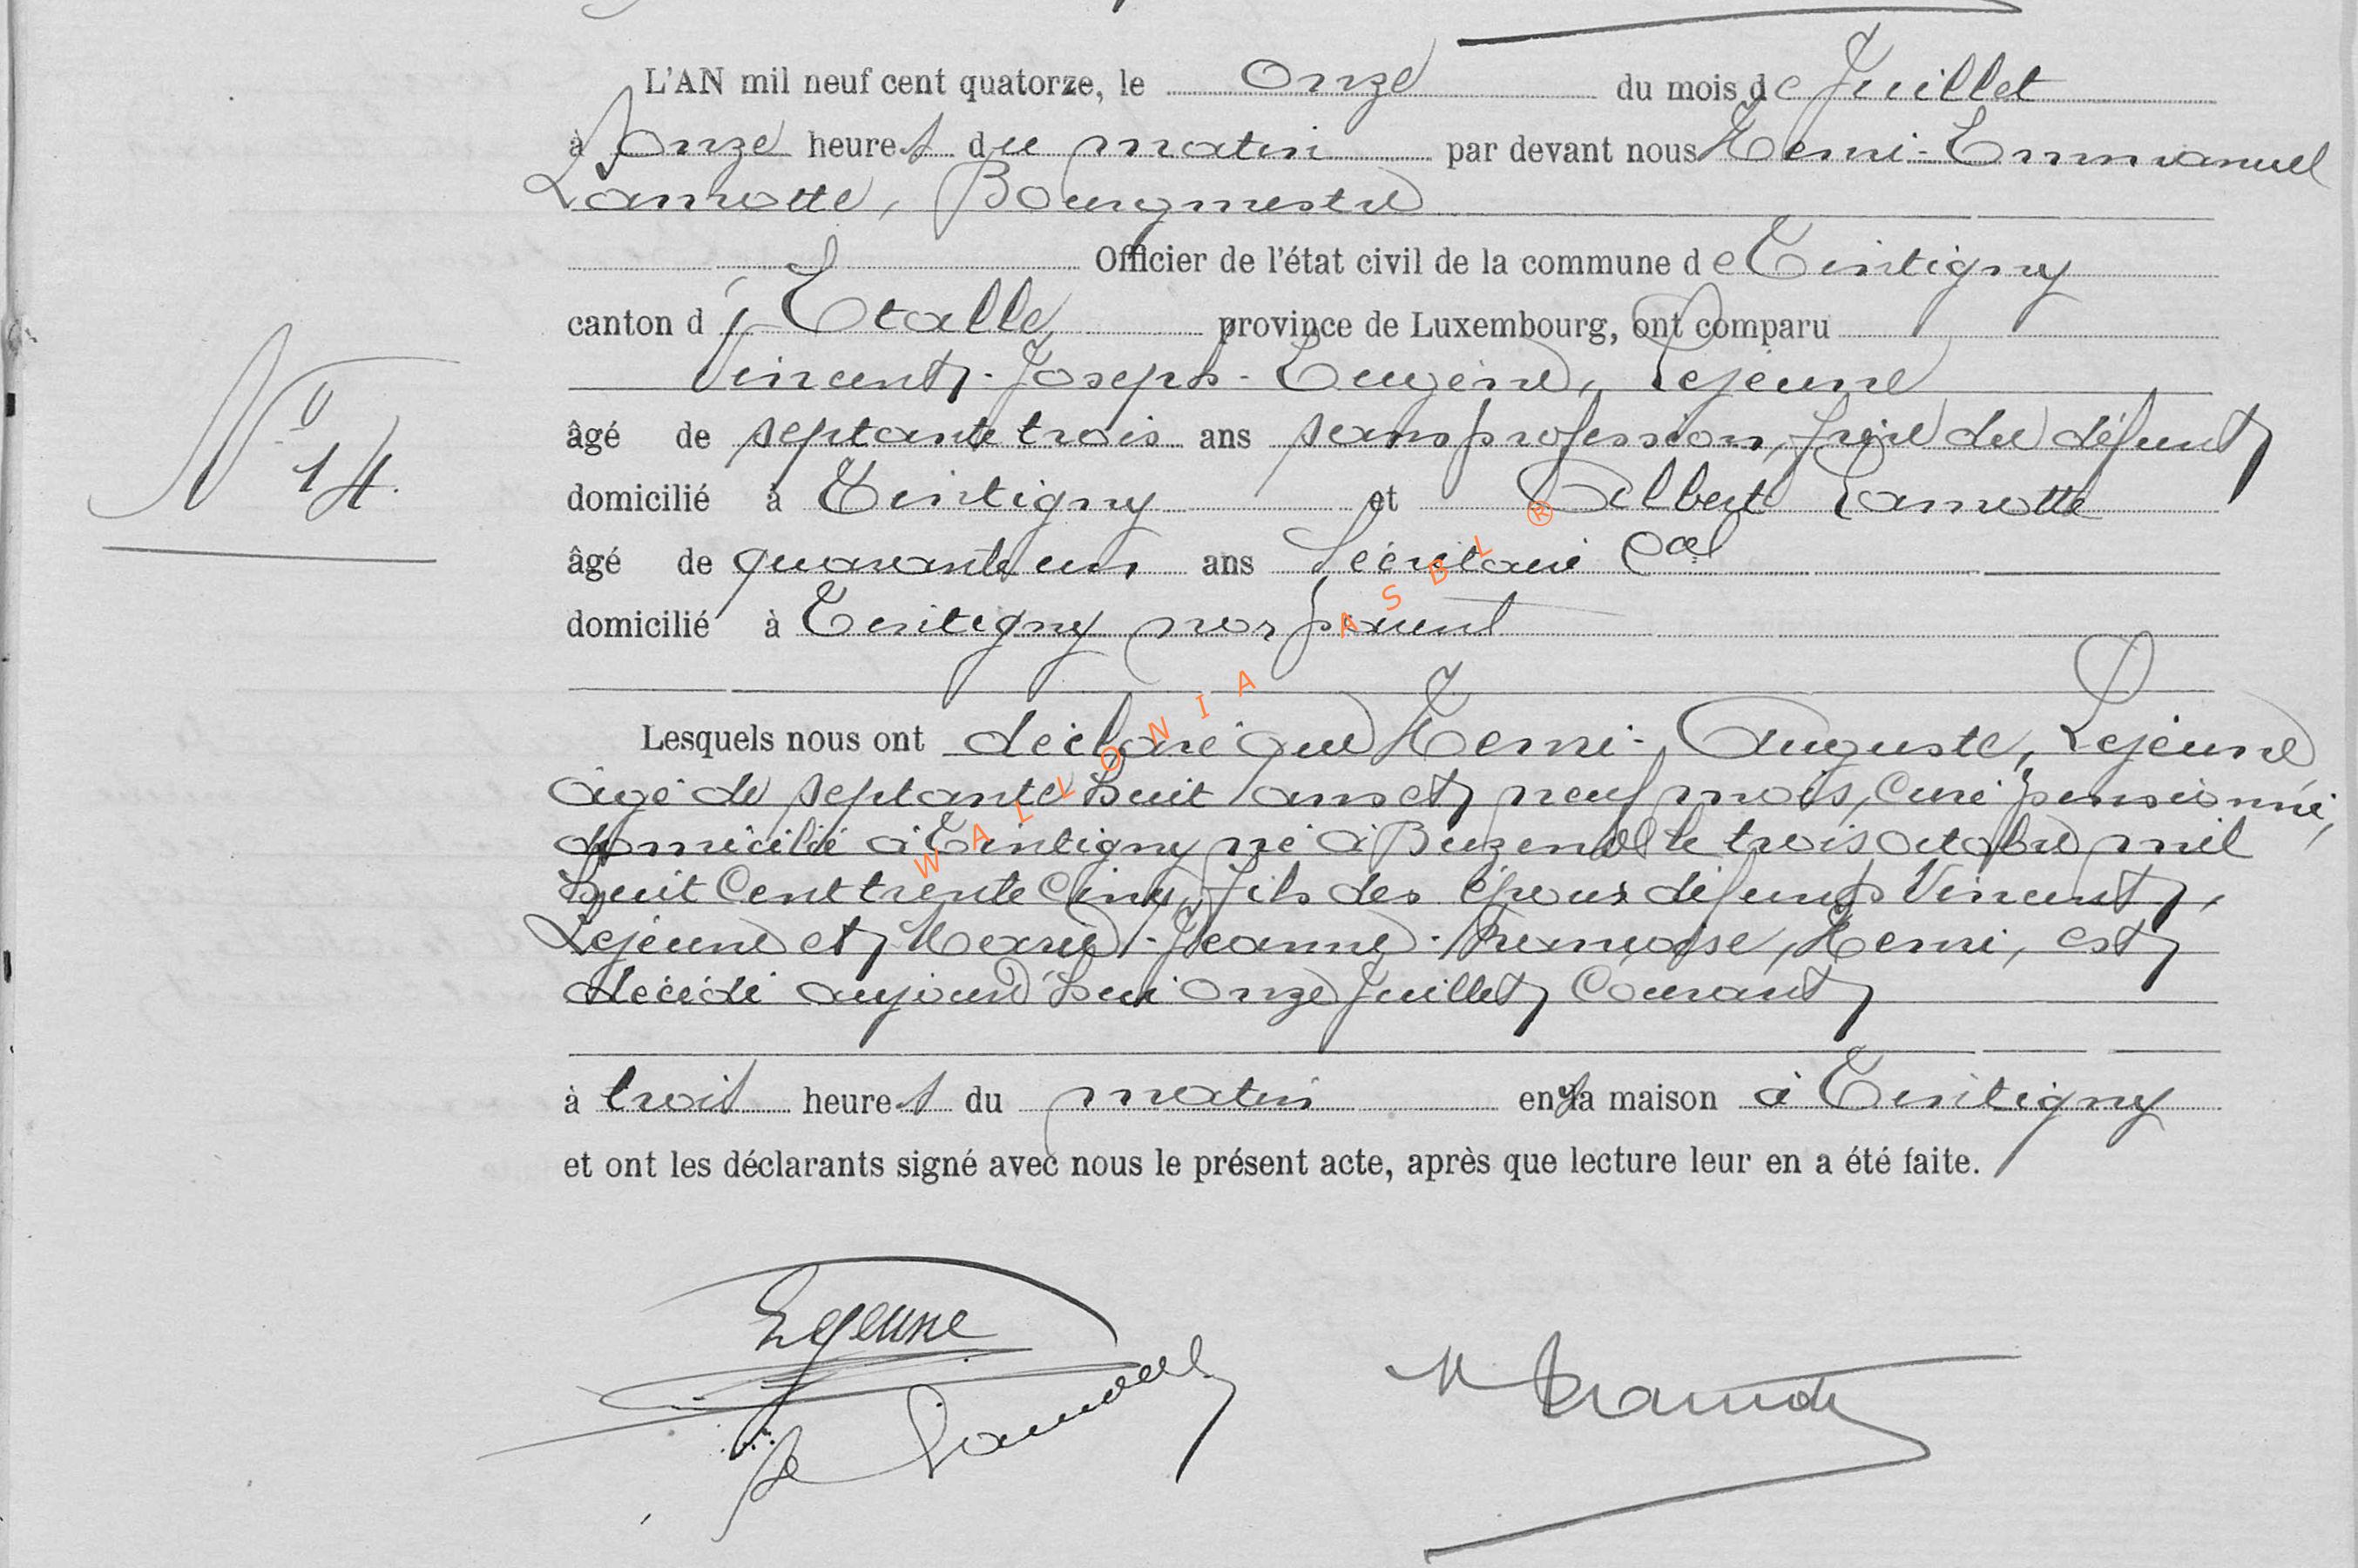 L'AN mil neuf cent quatorze, le onze du mois de Juillet
à onze heures du matin par devant nous Henri-Emmanuel
Lamotte, Bourgmestre
Officier de l'état civil de la commune de Tintigny
canton d'Etalle province de Luxembourg, ont comparu
Vincent-Joseph-Eugène, Lejeune
âgé de septante trois ans sans profession, frère du défunt
N° 14.
domicilié à Tintigny et Albert Lamotte
âgé de quarante un ans Secrétaire Cal
domicilié à Tintigny non parent
Lesquels nous ont déclaré que Henri-Auguste, Lejeune
âgé de septante huit ans et neuf mois, curé pensionné,
domicilié à Tintigny né à Buzenol le trois octobre mil
huit cent trente cinq, fils des époux défunts Vincent,
Lejeune et Marie-Jeanne-Françoise, Henri, est
décédé aujourd'hui onze Juillet courant
à trois heures du matin en sa maison à Tintigny
et ont les déclarants signé avec nous le présent acte, après que lecture leur en a été faite.
Lejeune
Lamotte
WALLONIA ASBL ®